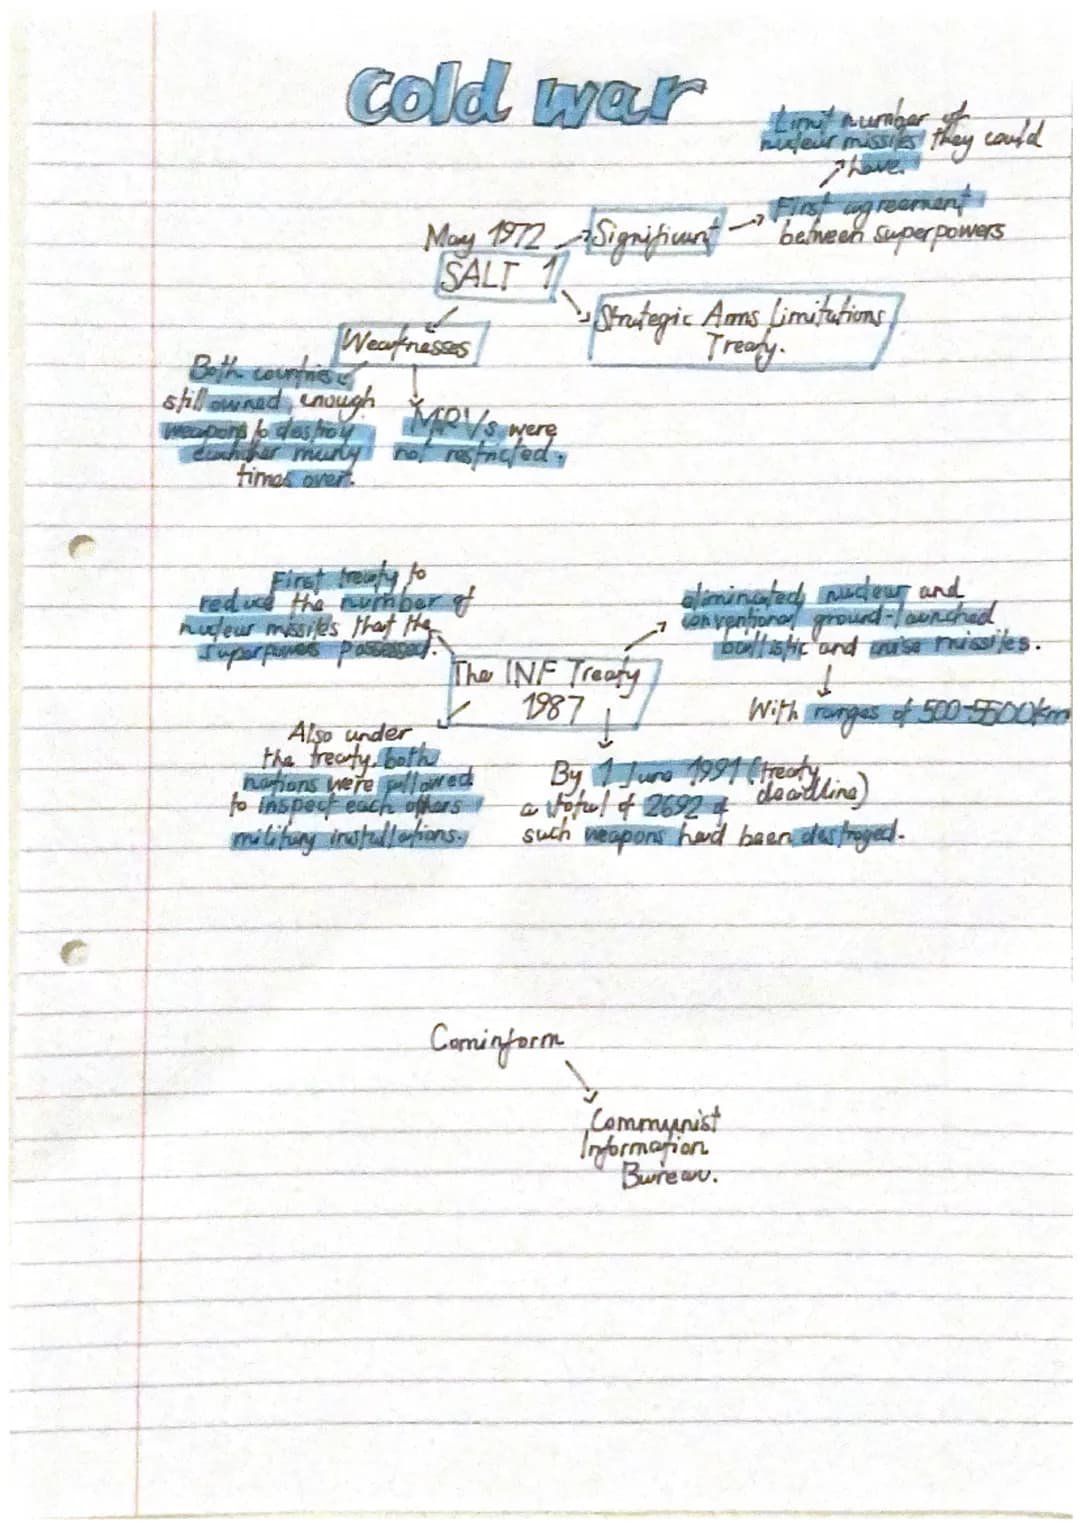 Cold war
Limit number of
nuclear missiles they could
have.
First agreement
between superpowers
Significant
May 1972
SALT 1
Strategic Arms Limitations
Treaty.
Weaknesses
Both countries
still owned enough
weapons to destroy
eachother many
times over.
MIRVs were
not restricted.
First treaty to
reduce the number of
nuclear missiles that the
superpowers possessed.
eliminated nuclear and
conventional ground-launched
ballistic and cruise missiles.
With ranges of 500-5500km
The INF Treaty
1987
Also under
the treaty, both
nations were allowed
to inspect each others
military installations.
By 1 June 1991 (treaty
deadline)
a total of 2692 of
such weapons had been destroyed.
Cominform
Communist
Information
Bureau.